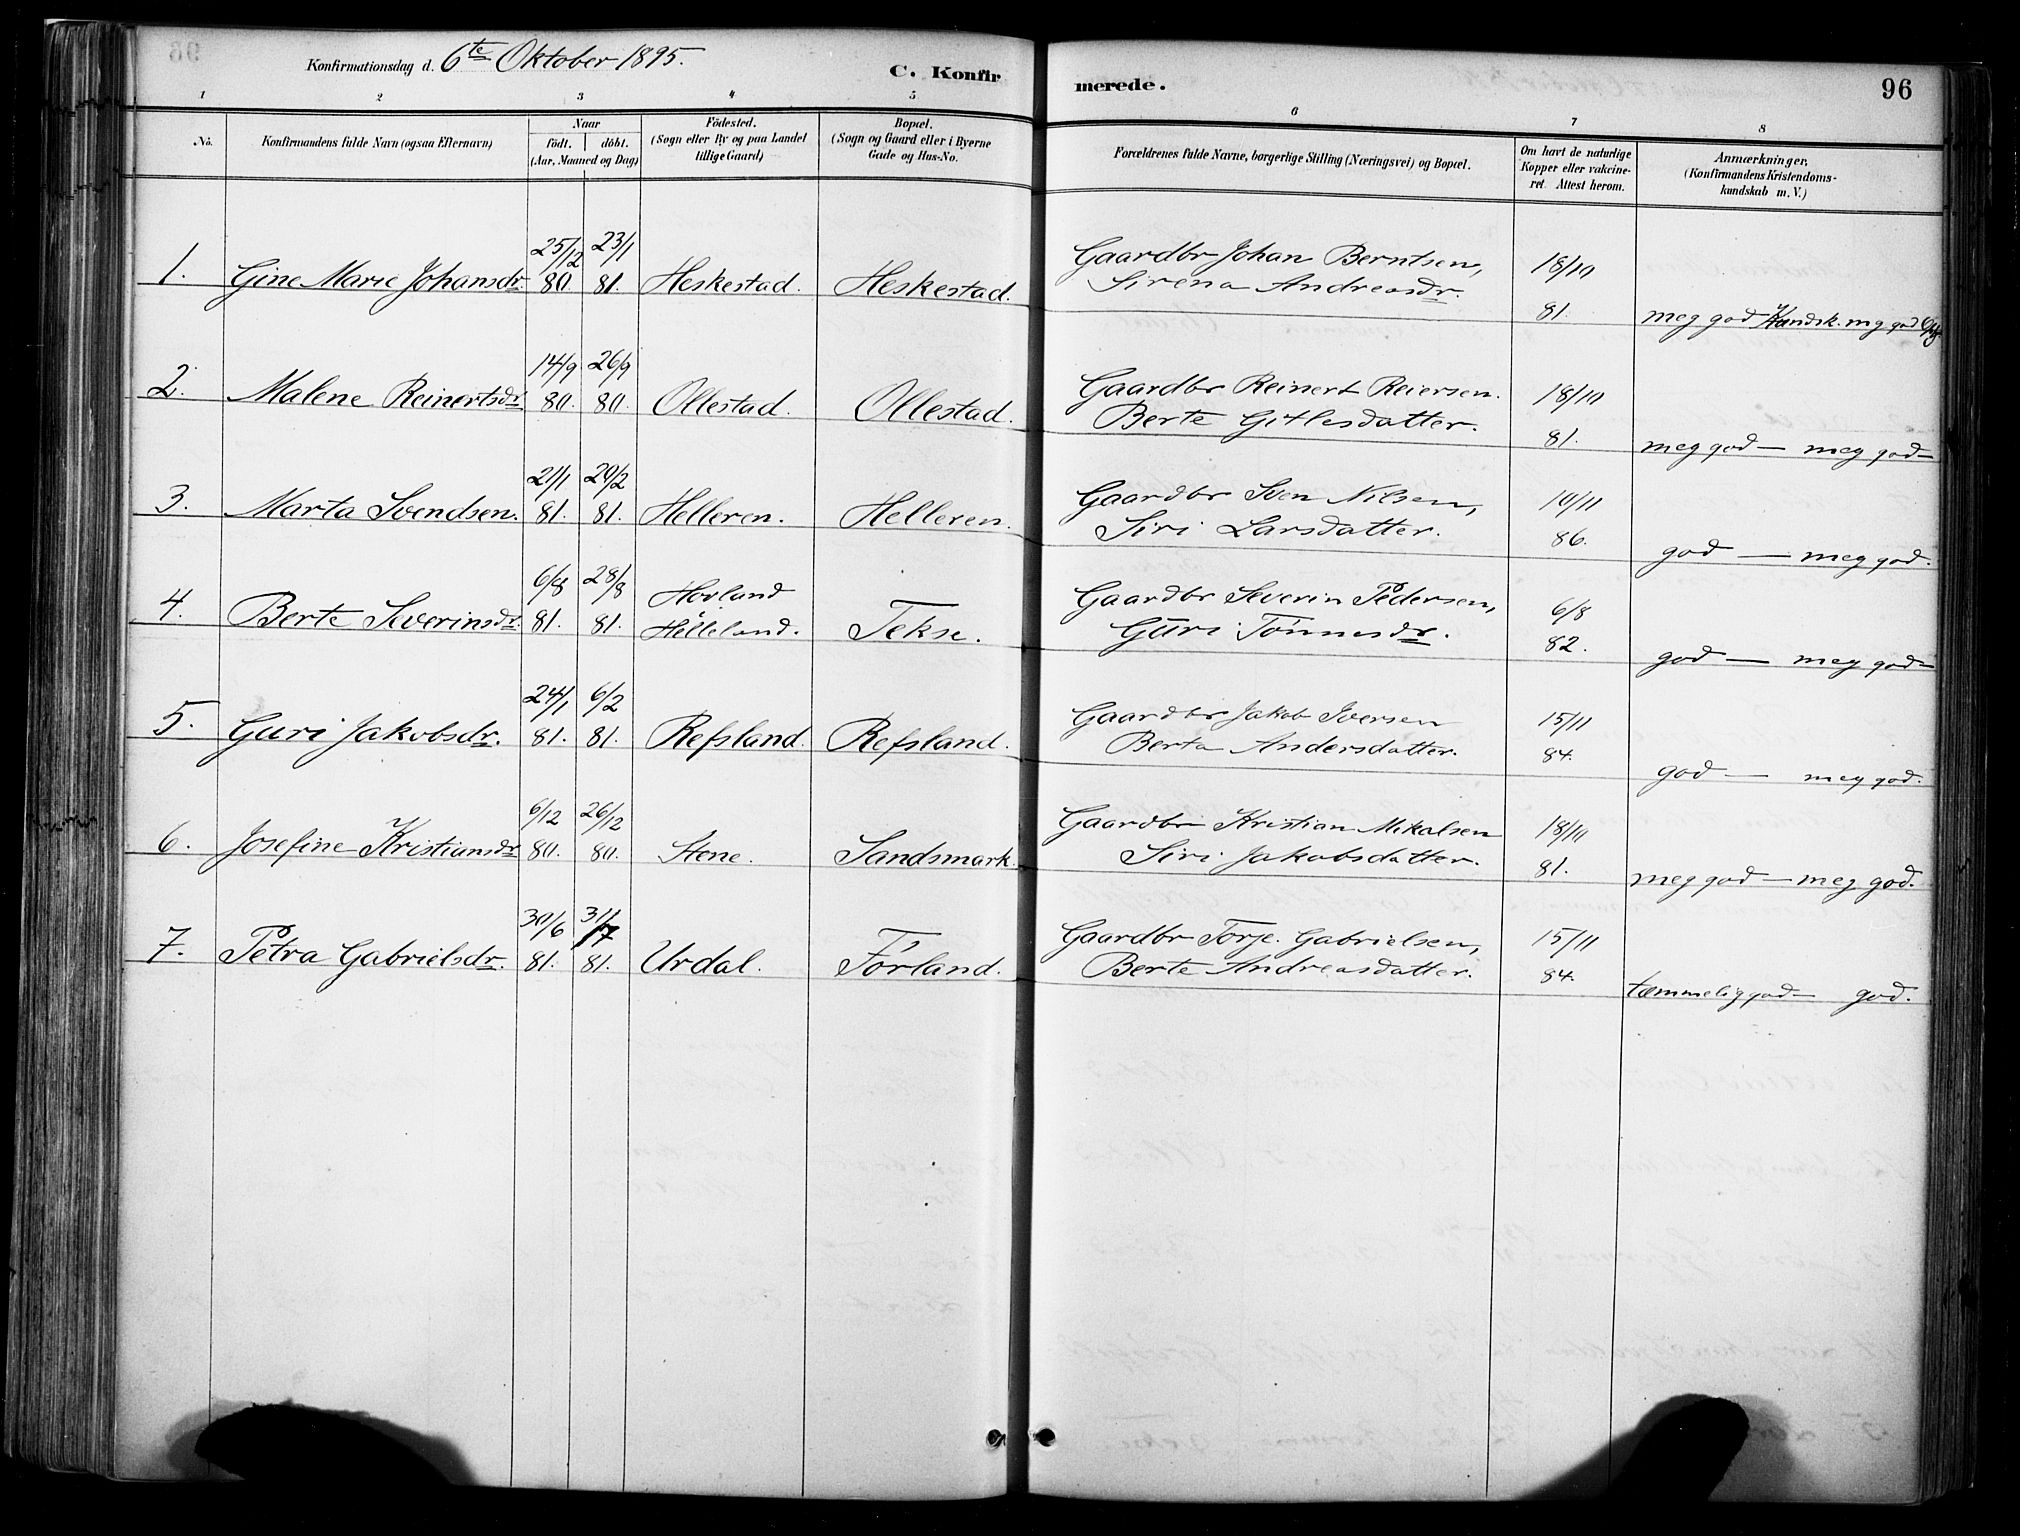 Konfirmationsdag d. 6te Oktober 1895.
C. Konfir merede. 96
1 2 3 4 5 6 7 8
No. Konfirmandens fulde Navn (ogsaa Efternavn) Naar födt. döbt. (Aar, Maaned og Dag) Födested. (Sogn eller By og paa Landet tillige Gaard) Bopæl. (Sogn og Gaard eller i Byerne Gade og Hus-No. Forældrenes fulde Navne, borgerlige Stilling (Næringsvei) og Bopæl. Om havt de naturlige Kopper eller vakcineret. Attest herom. Anmærkninger, (Konfirmandens Kristendomskundskab m. V.)
25/12 23/1 Gaardbr Johan Berntsen, 18/10
1. Gine Marie Johansdr. 80. 81. Heskestad. Heskestad. Sirena Andreasdr. 81. meg god Kundsk. mg god
14/9 26/9 Gaardbr Reinert Reiersen. 18/10
2. Malene Reinertsdr 80. 80. Ollestad. Ollestad. Berte Gitlesdatter. 81. meg god — meg god —
21/1 20/2 Gaardbr Sven Nilsen, 10/11
3. Marta Svendsen. 81. 81. Helleren. Helleren. Siri Larsdatter. 86. god — meg god.
6/8 28/8 Hovland Gaardbr Severin Pedersen, 6/8
4. Berte Severinsdr. 81. 81. Helleland. Tekse. Guri Tönnesdr. 82. god — meg god —
24/1 6/2 Gaardbr Jakob Iversen 15/11
5. Guri Jakobsdr. 81. 81. Refsland. Refsland. Berta Andersdatter. 84. god — meg god.
6/12 26/12 Gaardbr Kristian Mikalsen 18/10
6. Josefine Kristiansdr 80. 80. Stene. Sandsmark. Siri Jakobsdatter. 81. meg god — meg god.
30/6 31/7 Gaardbr Torje. Gabrielsen, 15/11
7. Petra Gabrielsdr. 81. 81. Urdal. Förland. Berte Andreasdatter. 84. tæmmelig god — god.